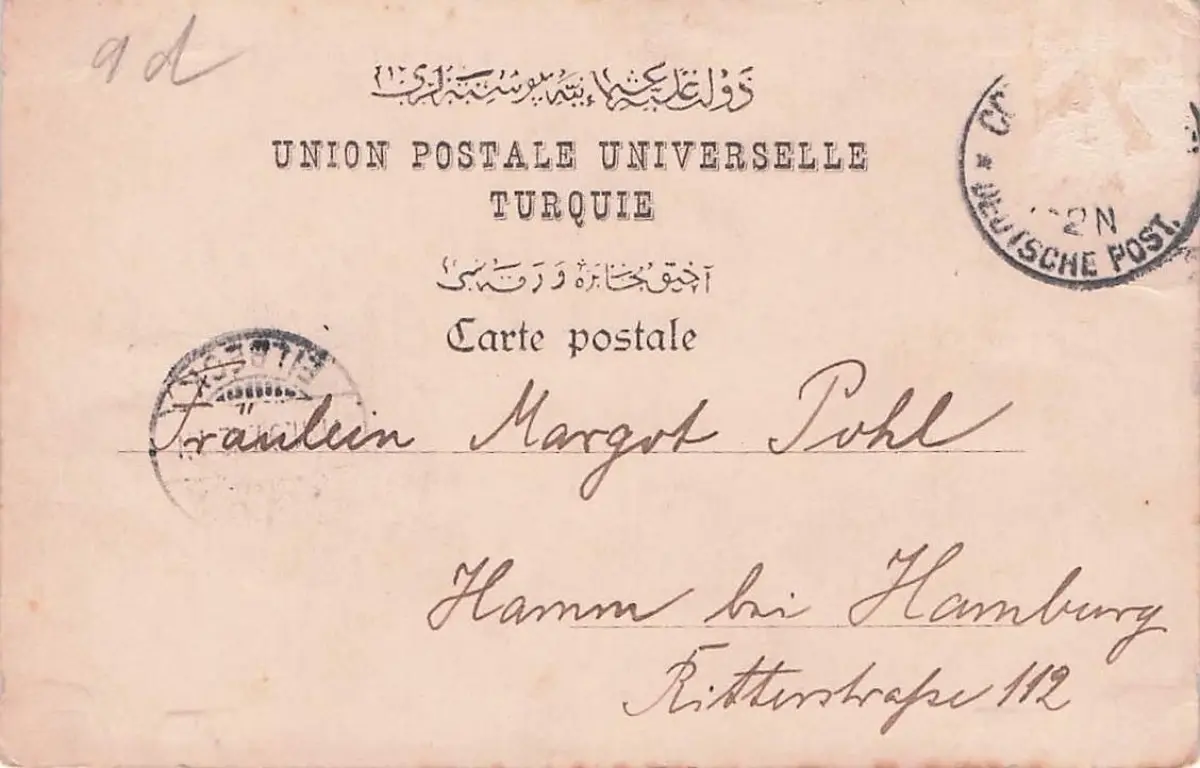 ad
دولت علیه عثمانیه پوسته لری
UNION POSTALE UNIVERSELLE
TURQUIE
آچیق مخابره ورقه سی
Carte postale
DEUTSCHE POST.
2N
EILBECK
Fräulein Margot Pohl
Hamm bei Hamburg
Ritterstraße 112